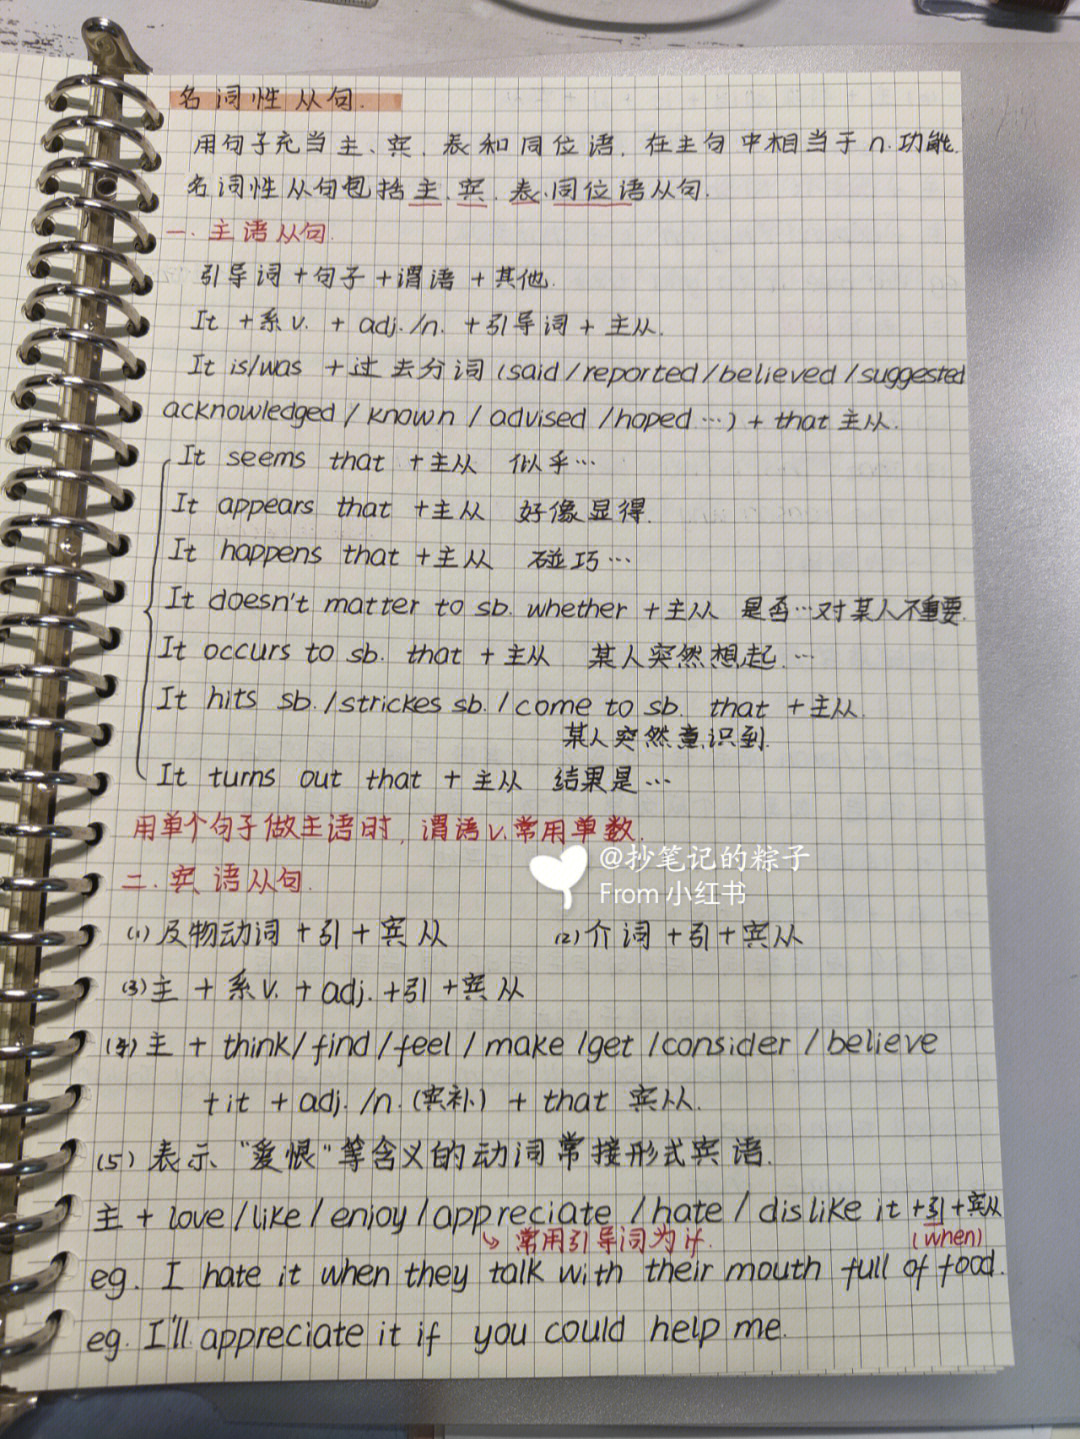 名词性从句.
用句子充当主、宾、表和同位语,在主句中相当于n.功能.
名词性从句包括主.宾.表.同位语从句.
一.主语从句.
引导词+句子+谓语+其他.
It +系v. + adj./n. +引导词+主从.
It is/was +过去分词(said/reported/believed/suggested
acknowledged/known/advised/hoped…)+that主从.
It seems that +主从 似乎…
It appears that +主从 好像显得.
It happens that +主从 碰巧…
It doesn't matter to sb. whether +主从 是否…对某人不重要.
It occurs to sb. that +主从 某人突然想起…
It hits sb./strickes sb./come to sb. that +主从.
某人突然意识到.
It turns out that +主从 结果是…
用单个句子做主语时,谓语v.常用单数.
@抄笔记的粽子
From 小红书
二.宾语从句.
(1)及物动词+引+宾从 (2)介词+引+宾从
(3)主+系v.+adj.+引+宾从
(4)主+think/find/feel/make/get/consider/believe
+it+adj./n.(宾补)+that宾从.
(5)表示"爱恨"等含义的动词常接形式宾语.
主+love/like/enjoy/appreciate/hate/dislike it+引+宾从
常用引导词为if. (when)
eg. I hate it when they talk with their mouth full of food.
eg. I'll appreciate it if you could help me.